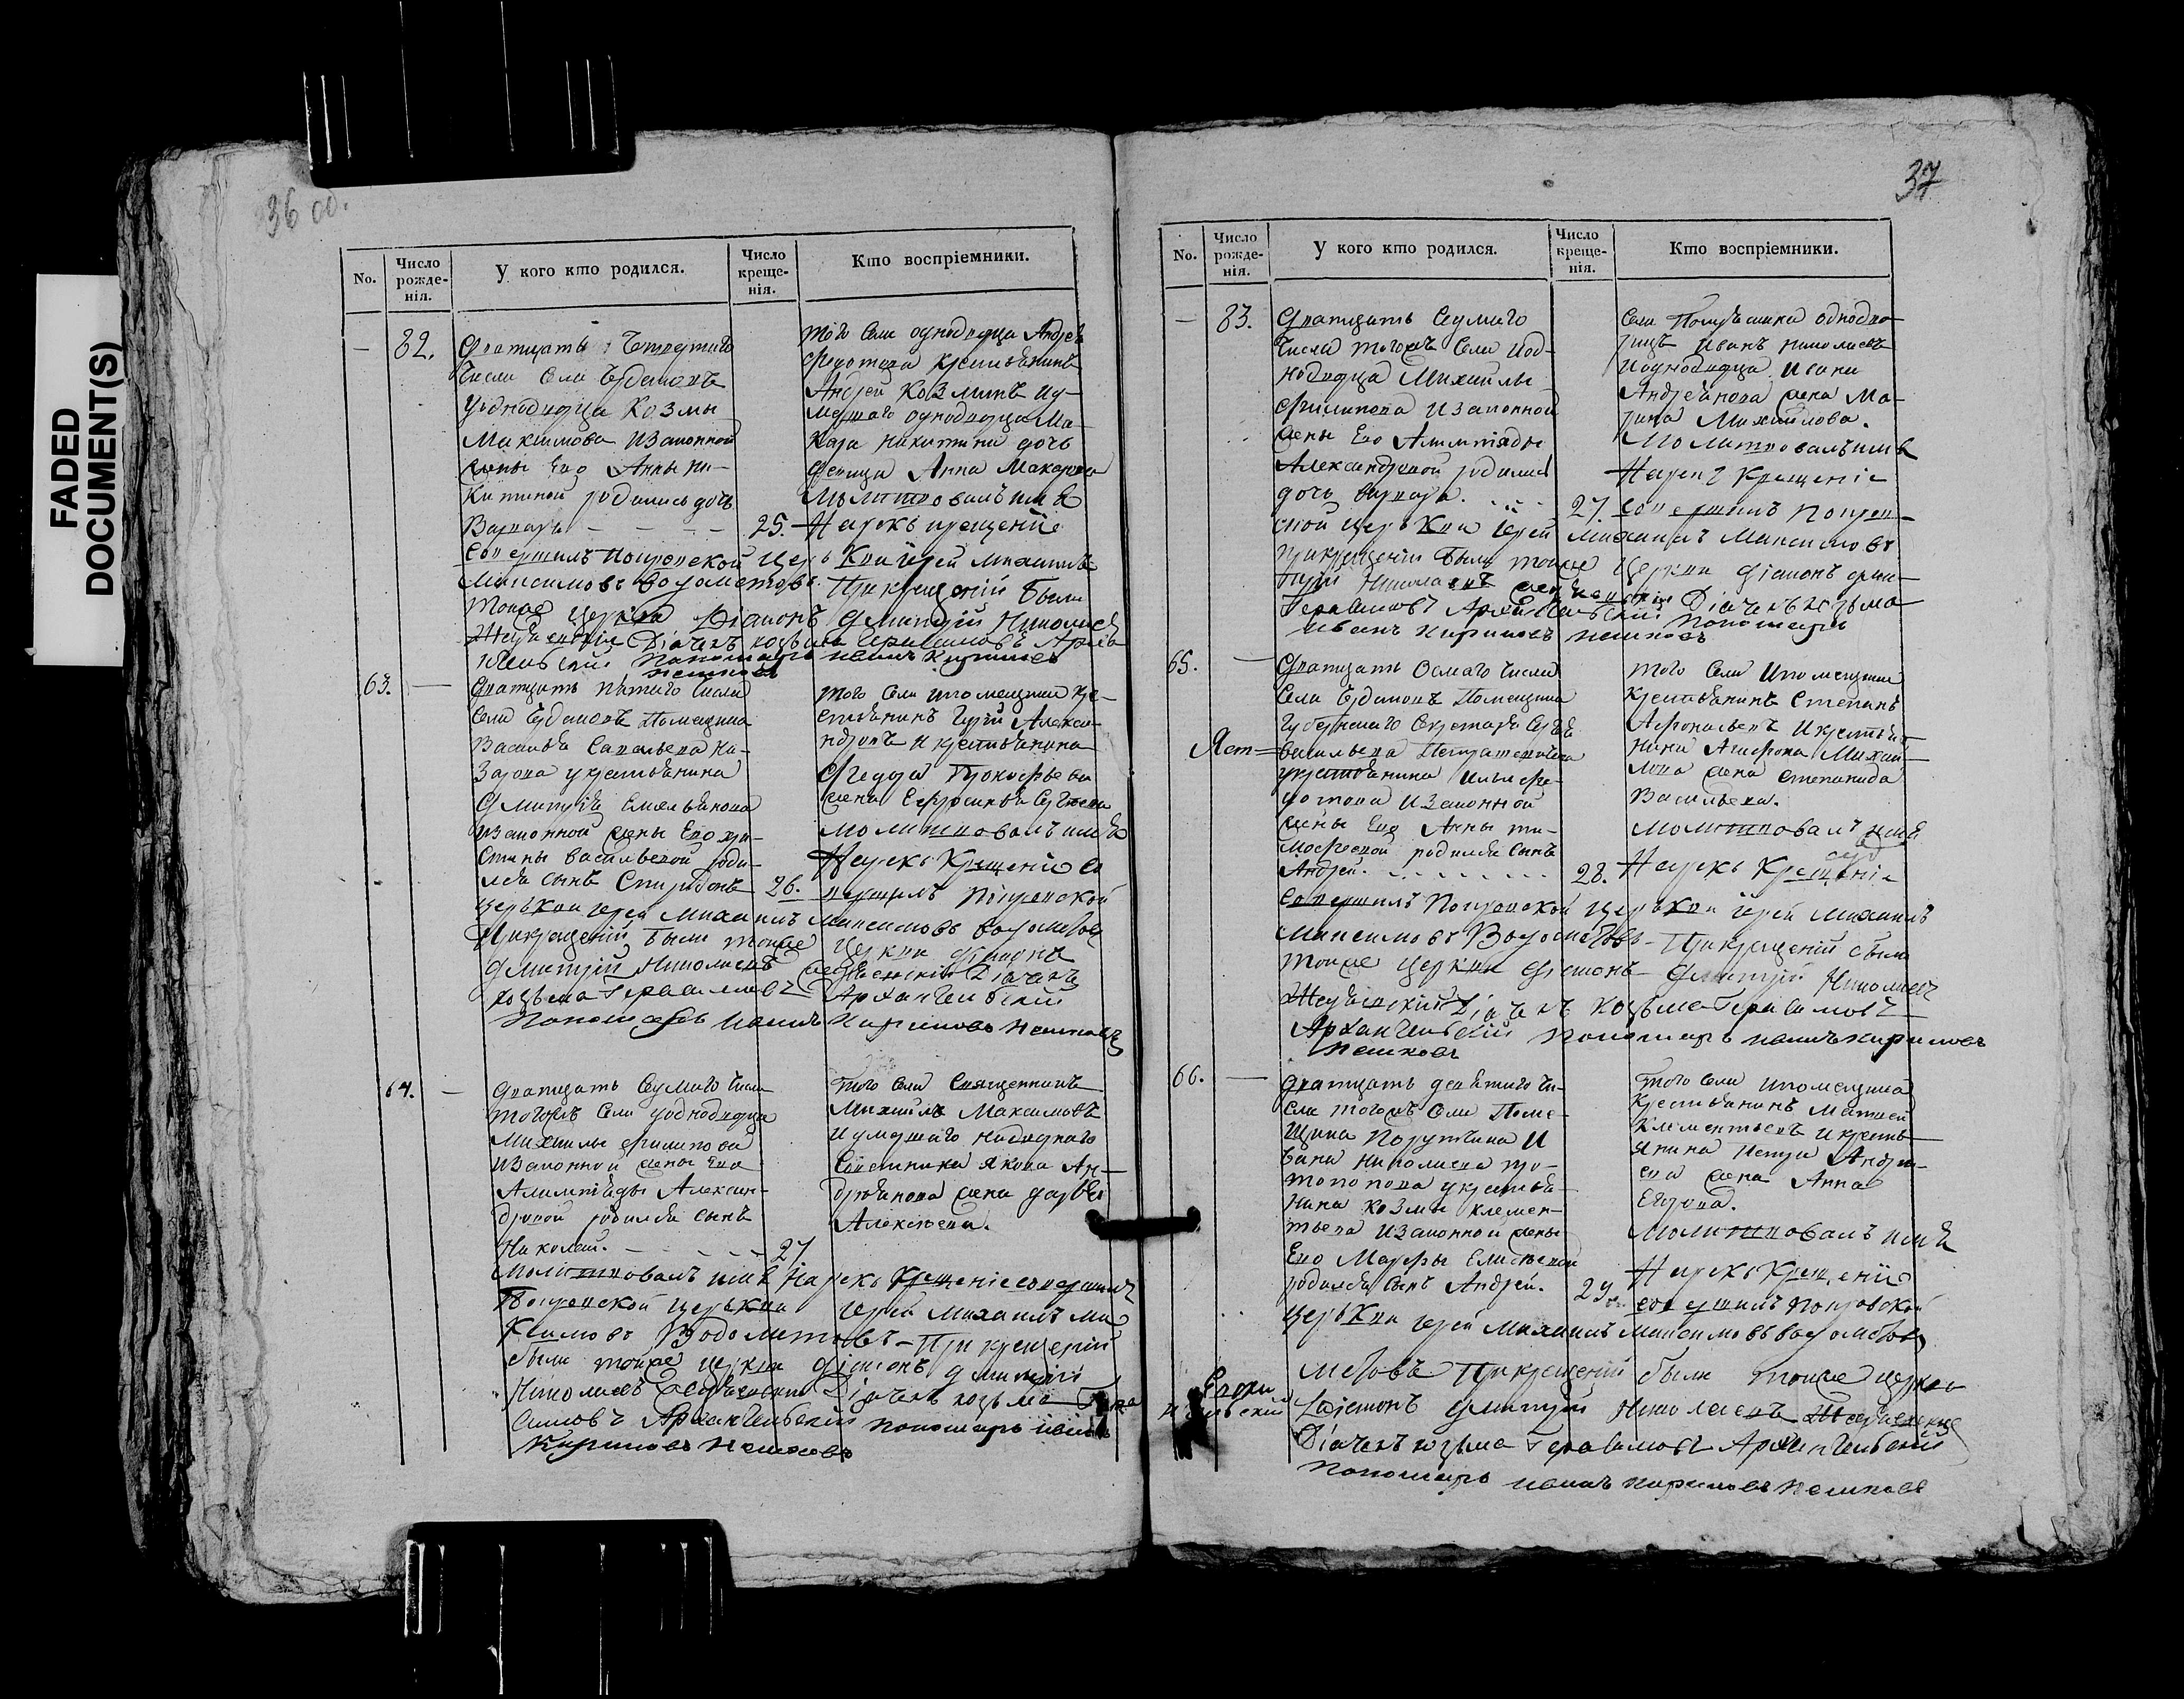 FADED
DOCUMENT(S)
36 об.
No.
Число рожде-нія.
У кого кто родился.
Число креще-нія.
Кто воспріемники.
— 82.
Дватцать Четвертаго
числа Села
Уоднодворца Козмы
Максимова Изаконной
жены Его Анны Ни-
китиной родилась дочь
Варвара — — — 25.
того Села однодворца Андрей
Федотова крестьянинъ
Андрей Козминъ Иу-
мершаго однодворца Ма-
кара Никитина дочь
девица Анна Макарова
Молитвовалъ имя
Нарекъ крещеніе
совершилъ Покровской Церькви Іерей Михаилъ
Максимовъ Водометовъ. Прикрещеніи были
тоиже церкви Діаконъ Дмитрій Николаевъ
Діачекъ козьма Герасимовъ Арха
нгельскій Пономарь иванъ Кириловъ
63. —
Дватцать пятаго числа
Села Помещика
Василья Савельева На-
зарова укрестьянина
Дмитрія Емельянова
Изаконной жены Его хри-
стины васильевой роди-
лся сынъ Спиридонъ 26.
того Села ипомещика кре-
стьянинъ Алекса-
ндровъ Икрестьянина
Федора Прокофьева
жена Ефросинья Сергеева
молитвовалъ имя
Нарекъ Крещеніе со
вершилъ Покровской
церькви іерей Михаилъ Максимовъ водометовъ
Прикрещеніи были тоиже Церкви діаконъ
Дмитрій Николаевъ Діачекъ
козьма Герасимовъ Архангельскій
Пономарь иванъ Кириловъ
64. —
Дватцать Седмаго числа
тогожъ Села уоднодворца
Михаилы Филипова
Изаконной жены Его
Алимпіяды Алексан-
дровой родился сынъ
Николай. — — — 27
того Села Священникъ
Михаилъ Максимовъ
Иумершаго надворнаго
Советника Якова Ан-
дреянова жена Дарья
Алексеева.
Молитвовалъ имя Нарекъ Крещеніе совершилъ
Покровской церькви іерей Михаилъ Ма
ксимовъ Водометовъ — При крещеніи
были тоиже церкви діаконъ дмитрій
Николаевъ Діачекъ козьма Гера
симовъ Архангельскій пономарь иванъ
Кириловъ
37
No.
Число рожде-нія.
У кого кто родился.
Число креще-нія.
Кто воспріемники.
— 83.
Дватцать Седмаго
Числа тогожъ Села Иод-
нодворца Михаилы
Филипова Изаконной
жены Его Алимпіяды
Александровой родилась
дочь варвара. 27.
Села однодво-
рецъ Иванъ Николаевъ
Иоднодворца Ивана
Андреянова жена Ма-
рина Михайлова.
Молитвовалъ имя
Нарекъ Крещеніе
совершилъ Покров-
ской церькви Іерей Михаилъ Максимовъ
прикрещеніи были тоиже Церкви діаконъ дми-
трій Николаевъ Діачекъ козьма
Герасимовъ Архангельскій Пономарь
Иванъ Кириловъ
65. —
Дватцать Осмаго числа
Села Помещика
Губернскаго Секретаря Сергея
васильева
укрестьянина Ильи Фе-
дотова Изаконной
жены Его Анны ти-
мофеевой родился сынъ
Андрей. 28.
того Села Ипомещика
Крестьянинъ Степанъ
Афонасьевъ Икрестья-
нина Агафона Михай-
лова жена степанида
Васильева.
Молитвовалъ имя
Нарекъ Крещеніе
Совершилъ Покровской церькви іерей Михаилъ
Максимовъ Водометовъ — Прикрещеніи были
тоиже церкви діаконъ — Дмитрій Николаевъ
Діачекъ козьма Герасимовъ
Архангельскій Пономарь иванъ кириловъ
66. —
Дватцать девятаго чи-
сла тогожъ Села Поме-
щика Порутчика И
вана Николаева про-
топопова укрестья-
нина Козмы клемен-
тьева Изаконной жены
Его Марфы Елисеевой
родился сынъ Андрей. 29.
того Села ипомещика
крестьянинъ Матвей
Клементьевъ икресть
янина Петра Андре-
ева жена Анна
Егорова.
Молитвовалъ имя
Нарекъ Крещеніе
совершилъ Покровской
церькви іерей Михаилъ Максимовъ водометовъ
Прикрещеніи были тоиже церкви
Діаконъ Дмитрій Николаевъ
Діачекъ козьма Герасимовъ Архангельскій
Пономарь иванъ кириловъ